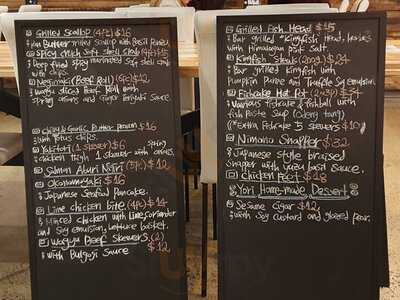 Grilled Scallop (4pc) $16
Pan Butter grilled Scallop with Basil Puree
Spicy Mch Soft Shell Crab (4pc) $15
Deep fried spicy marinated soft shell crab
with chips.
Negimaki (Beef Roll) (6pc) $12
Wagyu sliced Beef Roll with
spring onions and ginger teriyaki sauce.
Chilly & Garlic Butter prawn $16
with Lotus chips.
Yakitori (1 skewer) $6
chicken thigh 1 skewer with onions.
Spring
Salmon Aburi Nigiri (5pc) $12
Okonomiyaki $16
Japanese Seafood Pancake.
Lime chicken bite (4pc) $14
Minced chicken with lime, coriander
and Soy emulsion, Lettuce basket.
Wagyu Beef Skewers (2)
with Bulgogi Sauce $12
Grilled Fish Head $15
Bar grilled "Kingfish" Head, herbs
with Himalayan pink Salt.
Kingfish Steak (200g) $24
Bar grilled Kingfish with
Pumpkin Puree and Truffle Soy emulsion.
Fishcake Hot Pot $34
Various fishcake & fishball with
fish Paste Soup
(*Extra Fishcake 5 skewers $10)
Nimono Snapper $32
Japanese style braised
Snapper with Yuzu basil Sauce.
Chicken Feet $18
Yori Home-made Dessert
Sesame Cigar $12
with Soy custard and glazed pear.